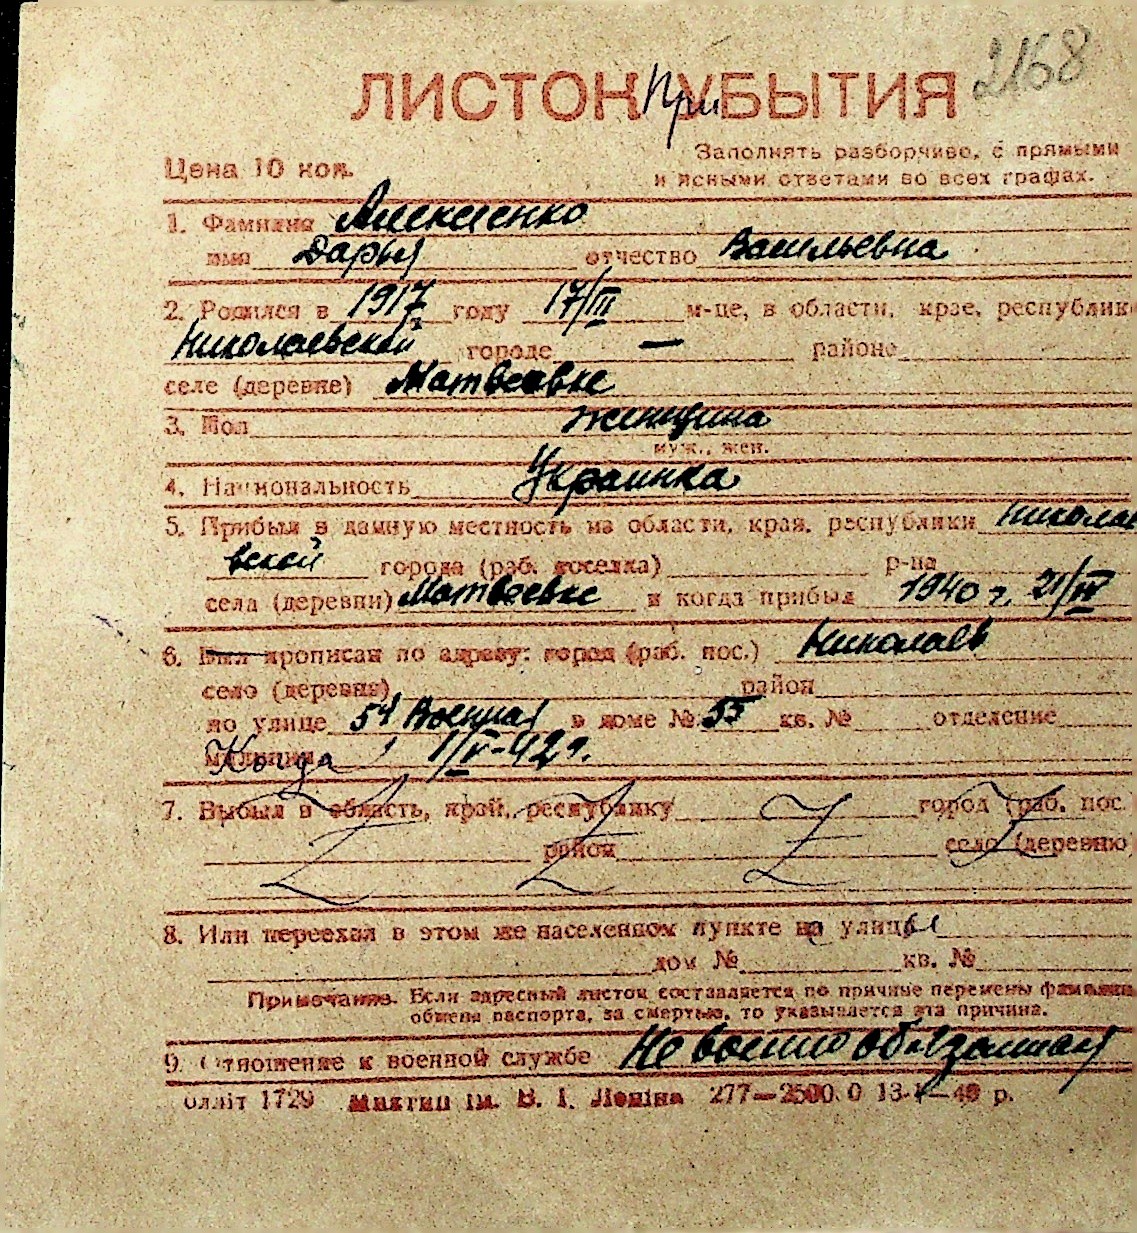 2168
ЛИСТОК При УБЫТИЯ
Цена 10 коп.
Заполнять разборчиво, с прямыми
и ясными ответами во всех графах.
1. Фамилия Алексеенко
имя Дарья отчество Васильевна
2. Родился в 1917 году 17/III м-це, в области, крае, республике
Николаевской городе — районе
селе (деревне) Матвеевке
3. Пол женщина
муж., жен.
4. Национальность Украинка
5. Прибыл в данную местность из области, края, республики Николае
вской города (раб. поселка) р-на
села (деревни) Матвеевке и когда прибыл 1940 г. 21/III
6. Был прописан по адресу: город (раб. пос.) Николаев
село (деревня) район
по улице 5я Военная в доме № 55 кв. № отделение
милиции Когда 1/V-42 г.
7. Выбыл в область, край, республику город (раб. пос.
район село (деревню)
8. Или переехал в этом же населенном пункте на улицы
дом № кв. №
Примечание. Если адресный листок составляется по причине перемены фамилии
обмена паспорта, за смертью, то указывается эта причина.
9. Отношение к военной службе Не военно обязанная
олліт 1729 Миктип ім. В. І. Леніна 277—2500.0 13-V—40 р.